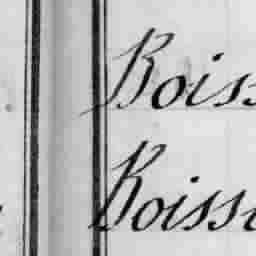 Boiss
Boissi